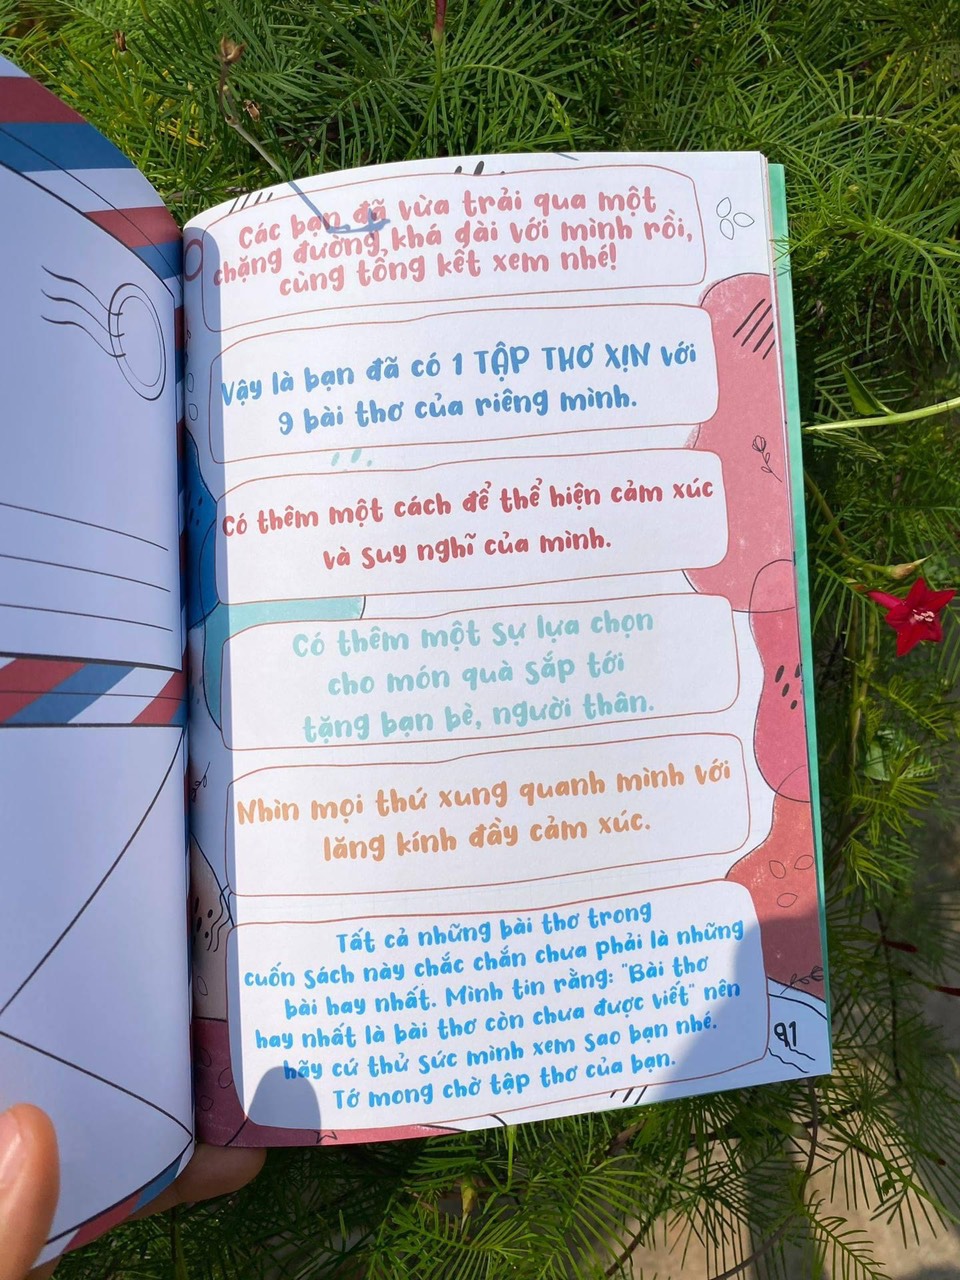 Các bạn đã vừa trải qua một
chặng đường khá dài với mình rồi,
cùng tổng kết xem nhé!
Vậy là bạn đã có 1 TẬP THƠ XỊN với
9 bài thơ của riêng mình.
Có thêm một cách để thể hiện cảm xúc
và suy nghĩ của mình.
Có thêm một sự lựa chọn
cho món quà sắp tới
tặng bạn bè, người thân.
Nhìn mọi thứ xung quanh mình với
lăng kính đầy cảm xúc.
Tất cả những bài thơ trong
cuốn sách này chắc chắn chưa phải là những
bài hay nhất. Mình tin rằng: "Bài thơ
hay nhất là bài thơ còn chưa được viết" nên
hãy cứ thử sức mình xem sao bạn nhé.
Tớ mong chờ tập thơ của bạn.
91